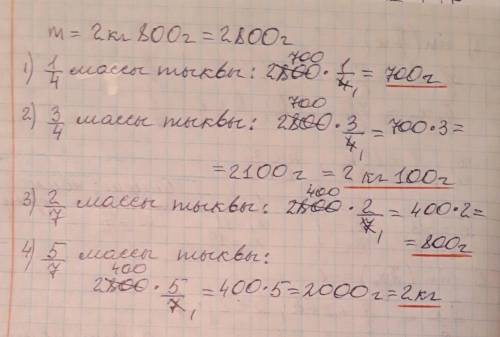 m = 2кг 800г = 2800г
1) 1/4 массы тыквы: 2800 · 1/4 = 700г
700 1
2) 3/4 массы тыквы: 2800 · 3/4 = 700·3=
700 1
=2100г = 2кг 100г
3) 2/7 массы тыквы: 2800 · 2/7 = 400·2=
400 1
= 800г
4) 5/7 массы тыквы:
400
2800 · 5/7 = 400·5=2000г=2кг
1